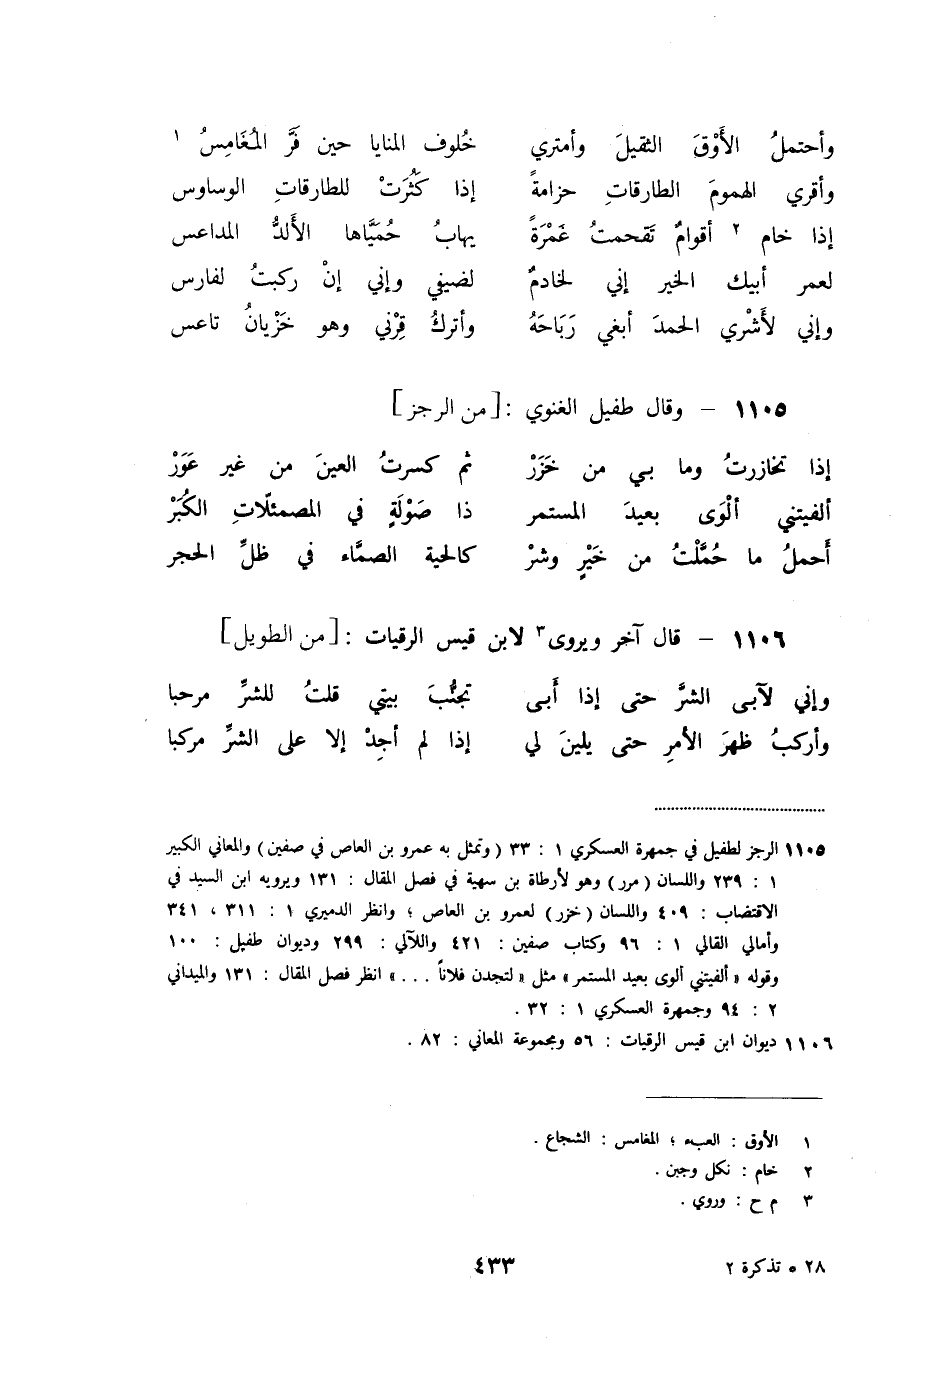 وأحتملُ الأَوْقَ الثقيلَ وأمتري خُلوف المنايا حين فَرَّ المُغَامِسُ ١
وأقري الهمومَ الطارقاتِ حزامةً إذا كَثُرَتْ للطارقاتِ الوساوس
إذا خام ٢ أقوامٌ تَقحمتُ غَمْرَةً يهابُ حُمَيَّاها الأَلدُّ المداعس
لعمر أبيك الخير إني لخادمٌ لضيفي وإني إنْ ركبتُ لفارس
وإني لأَشْري الحمدَ أبغي رَبَاحَهُ وأتركُ قِرْني وهو خَزْيانُ تاعس
١١٠٥ – وقال طفيل الغنوي : [من الرجز]
إذا تخازرتُ وما بي من خَزَرْ ثم كسرتُ العينَ من غير عَوَرْ
ألفيتني ألْوَى بعيدَ المستمر ذا صَوْلَةٍ في المصمئلّاتِ الكُبَرْ
أَحملُ ما حُمِّلْتُ من خَيْرٍ وشرْ كالحية الصمَّاء في ظلِّ الحجر
١١٠٦ – قال آخر ويروى٣ لابن قيس الرقيات : [من الطويل]
وإني لآبى الشرَّ حتى إذا أَبى تجنُّبَ بيتي قلتُ للشرِّ مرحبا
وأركبُ ظهرَ الأمرِ حتى يلينَ لي إذا لم أجِدْ إلا على الشرِّ مركبا
١١٠٥ الرجز لطفيل في جمهرة العسكري ١ : ٣٣ (وتمثل به عمرو بن العاص في صفين) والمعاني الكبير
١ : ٢٣٩ واللسان (مرر) وهو لأرطاة بن سهية في فصل المقال : ١٣١ ويرويه ابن السيد في
الاقتضاب : ٤٠٩ واللسان (خزر) لعمرو بن العاص ؛ وانظر الدميري ١ : ٣١١ ، ٣٤١
وأمالي القالي ١ : ٩٦ وكتاب صفين : ٤٢١ واللآلي : ٢٩٩ وديوان طفيل : ١٠٠
وقوله «ألفيتني ألوى بعيد المستمر» مثل «لتجدن فلاناً ...» انظر فصل المقال : ١٣١ والميداني
٢ : ٩٤ وجمهرة العسكري ١ : ٣٢ .
١١٠٦ ديوان ابن قيس الرقيات : ٥٦ ومجموعة المعاني : ٨٢ .
١ الأوق : العبء ؛ المغامس : الشجاع .
٢ خام : نكل وجبن .
٣ م ح : وروي .
٢٨ ه تذكرة ٢ ٤٣٣